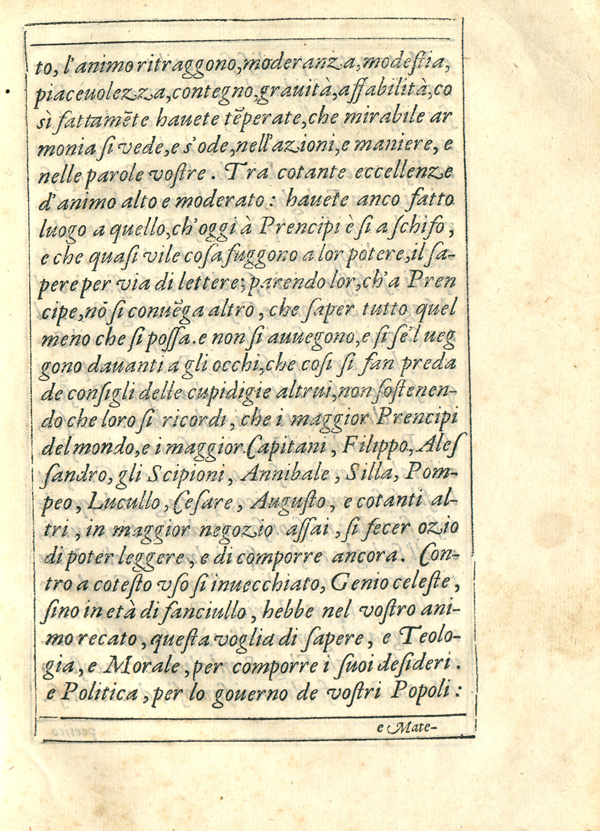 to, l'animo ritraggono, moderanza, modestia,
piaceuolezza, contegno, grauità, affabilità, co
sì fattamẽte hauete tẽperate, che mirabile ar
monia si vede, e s'ode, nell'azioni, e maniere, e
nelle parole vostre. Tra cotante eccellenze
d'animo alto e moderato: hauete anco fatto
luogo a quello, ch'oggi à Prencipi è sì a schifo,
e che quasi vile cosa fuggono a lor potere, il sa-
pere per via di lettere; parendo lor, ch'a Pren
cipe, nõ si conuẽga altro, che saper tutto quel
meno che si possa. e non si auuegono, e si se'l ueg
gono dauanti a gli occhi, che così si fan preda
de consigli delle cupidigie altrui, non sostenen-
do che loro si ricordi, che i maggior Prencipi
del mondo, e i maggior Capitani, Filippo, Ales
sandro, gli Scipioni, Annibale, Silla, Pom-
peo, Lucullo, Cesare, Augusto, e cotanti al-
tri, in maggior negozio assai, si fecer ozio
di poter leggere, e di comporre ancora. Con-
tro a cotesto vso sì inuecchiato, Genio celeste,
sino in età di fanciullo, hebbe nel vostro ani-
mo recato, questa voglia di sapere, e Teolo-
gia, e Morale, per comporre i suoi desideri.
e Politica, per lo gouerno de vostri Popoli:
e Mate-